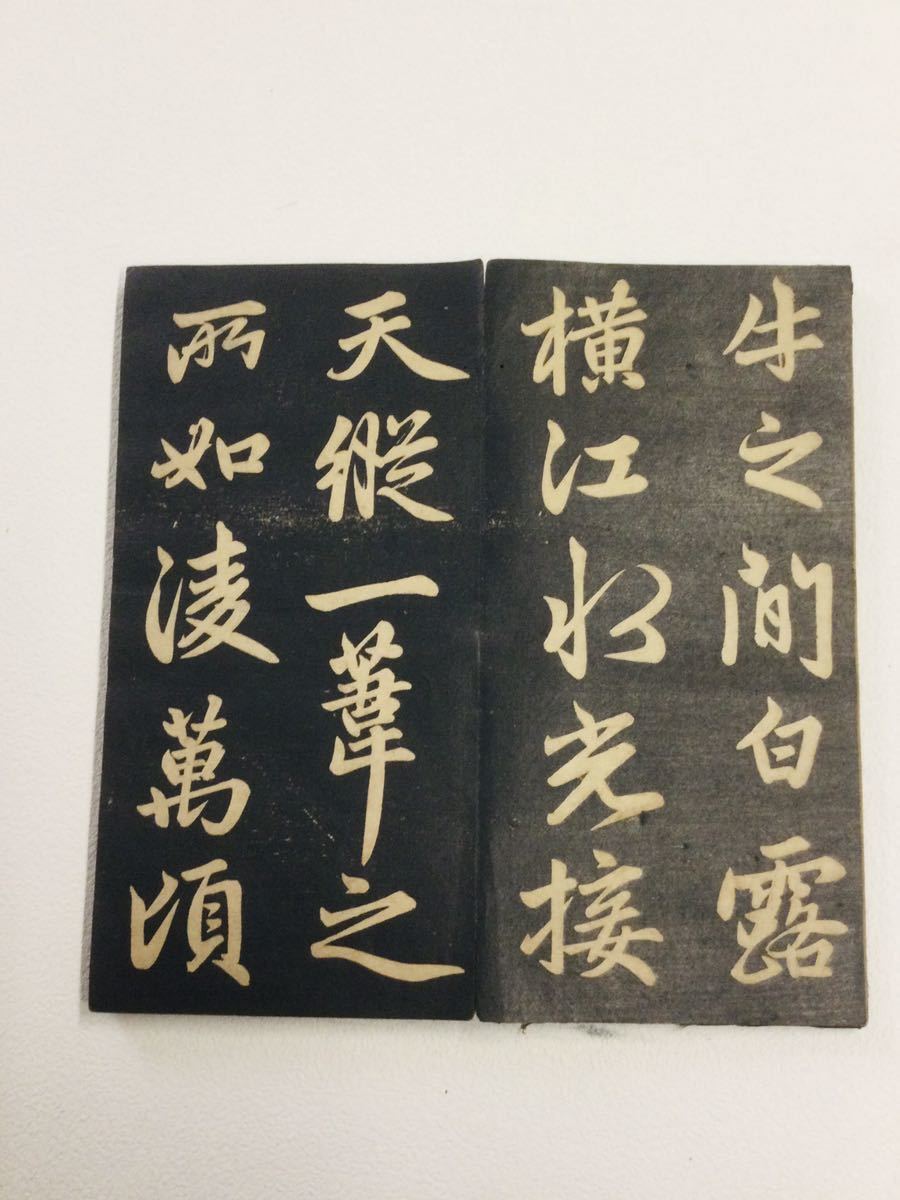 牛之間白露
橫江水光接
天縱一葦之
所如淩萬頃